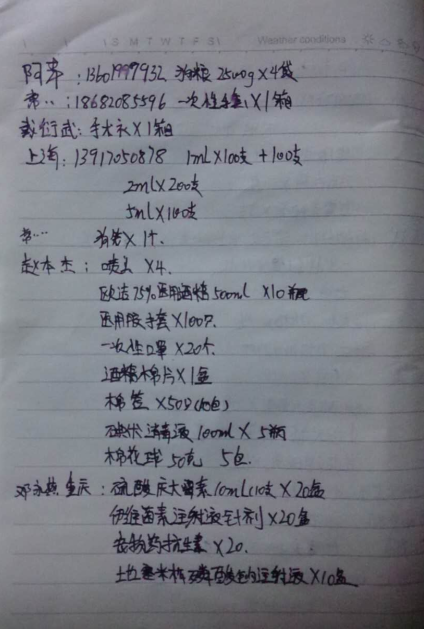 S M T W T F S Weather conditions
阿苹：13601997932 狗粮 2500g×4袋
常‥：18682085596 一次性手套×1箱
戴衍武：手术衣×1箱
上海：13917050878 1ml×100支+100支
2ml×200支
5ml×100支
常…… 狗×1个.
赵本杰：×4.
欧洁75%医用酒精500ml×10瓶
医用胶手套×100只.
一次性口罩×20个.
酒精棉片×1盒
棉签×50只(10包)
碘伏消毒液100ml×5瓶
棉花球50克 5包.
重庆：硫酸庆大霉素10ml(10支×20盒
伊维菌素注射液针剂×20盒
抗生素×20.
土拉塞米松磷酸钠注射液×10盒